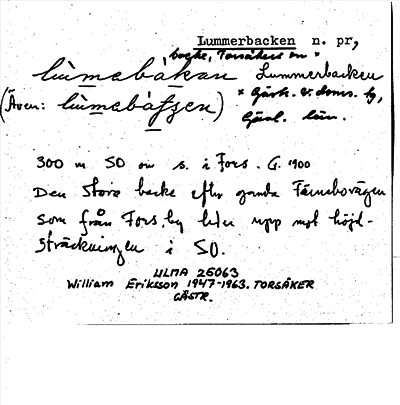 Lummerbacken n. pr,
backe, Torsåkers sn
lùmebàkan Lummerbacken
(Även: lùmebàtsen) × Gästr. V. doms. hg,
Gävl. län.
300 m SO om s. i Fors. G. 1900
Den stora backe efter gamla Färnebovägen
som från Fors by leder upp mot höjd-
sträckningen i SO.
ULMA 25063
William Eriksson 1947-1963. TORSÅKER
GÄSTR.